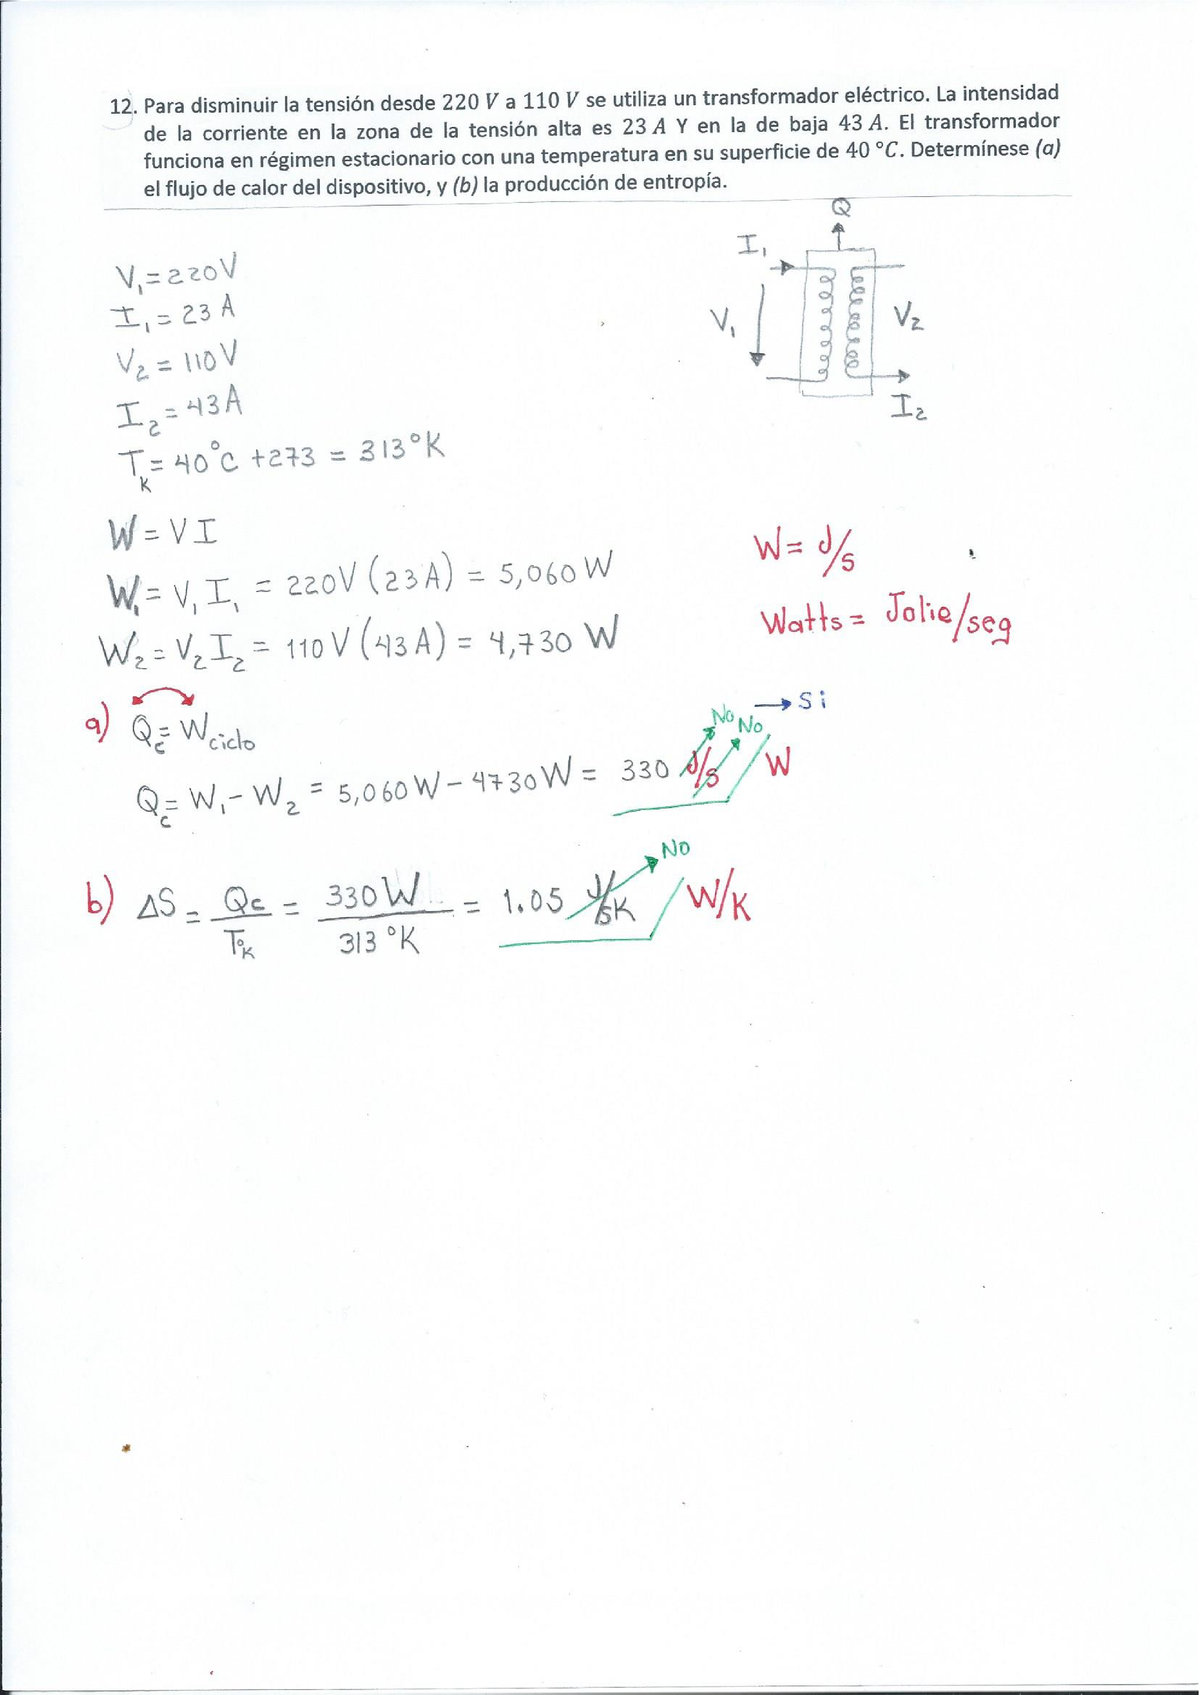 12. Para disminuir la tensión desde 220 V a 110 V se utiliza un transformador eléctrico. La intensidad
de la corriente en la zona de la tensión alta es 23 A Y en la de baja 43 A. El transformador
funciona en régimen estacionario con una temperatura en su superficie de 40 °C. Determínese (a)
el flujo de calor del dispositivo, y (b) la producción de entropía.
Q
I₁
V₁
V₂
I₂
V₁ = 220 V
I₁ = 23 A
V₂ = 110 V
I₂ = 43 A
T_K = 40°C + 273 = 313 °K
W = V I
W₁ = V₁ I₁ = 220V (23 A) = 5,060 W
W₂ = V₂ I₂ = 110 V (43 A) = 4,730 W
W = J/s
Watts = Jolie/seg
a) Q_c = W ciclo
No No → Si
Q_c = W₁ - W₂ = 5,060 W - 4730 W = 330 J/s / W
No
b) ΔS = Qc / T°K = 330 W / 313 °K = 1.05 J/sK / W/K